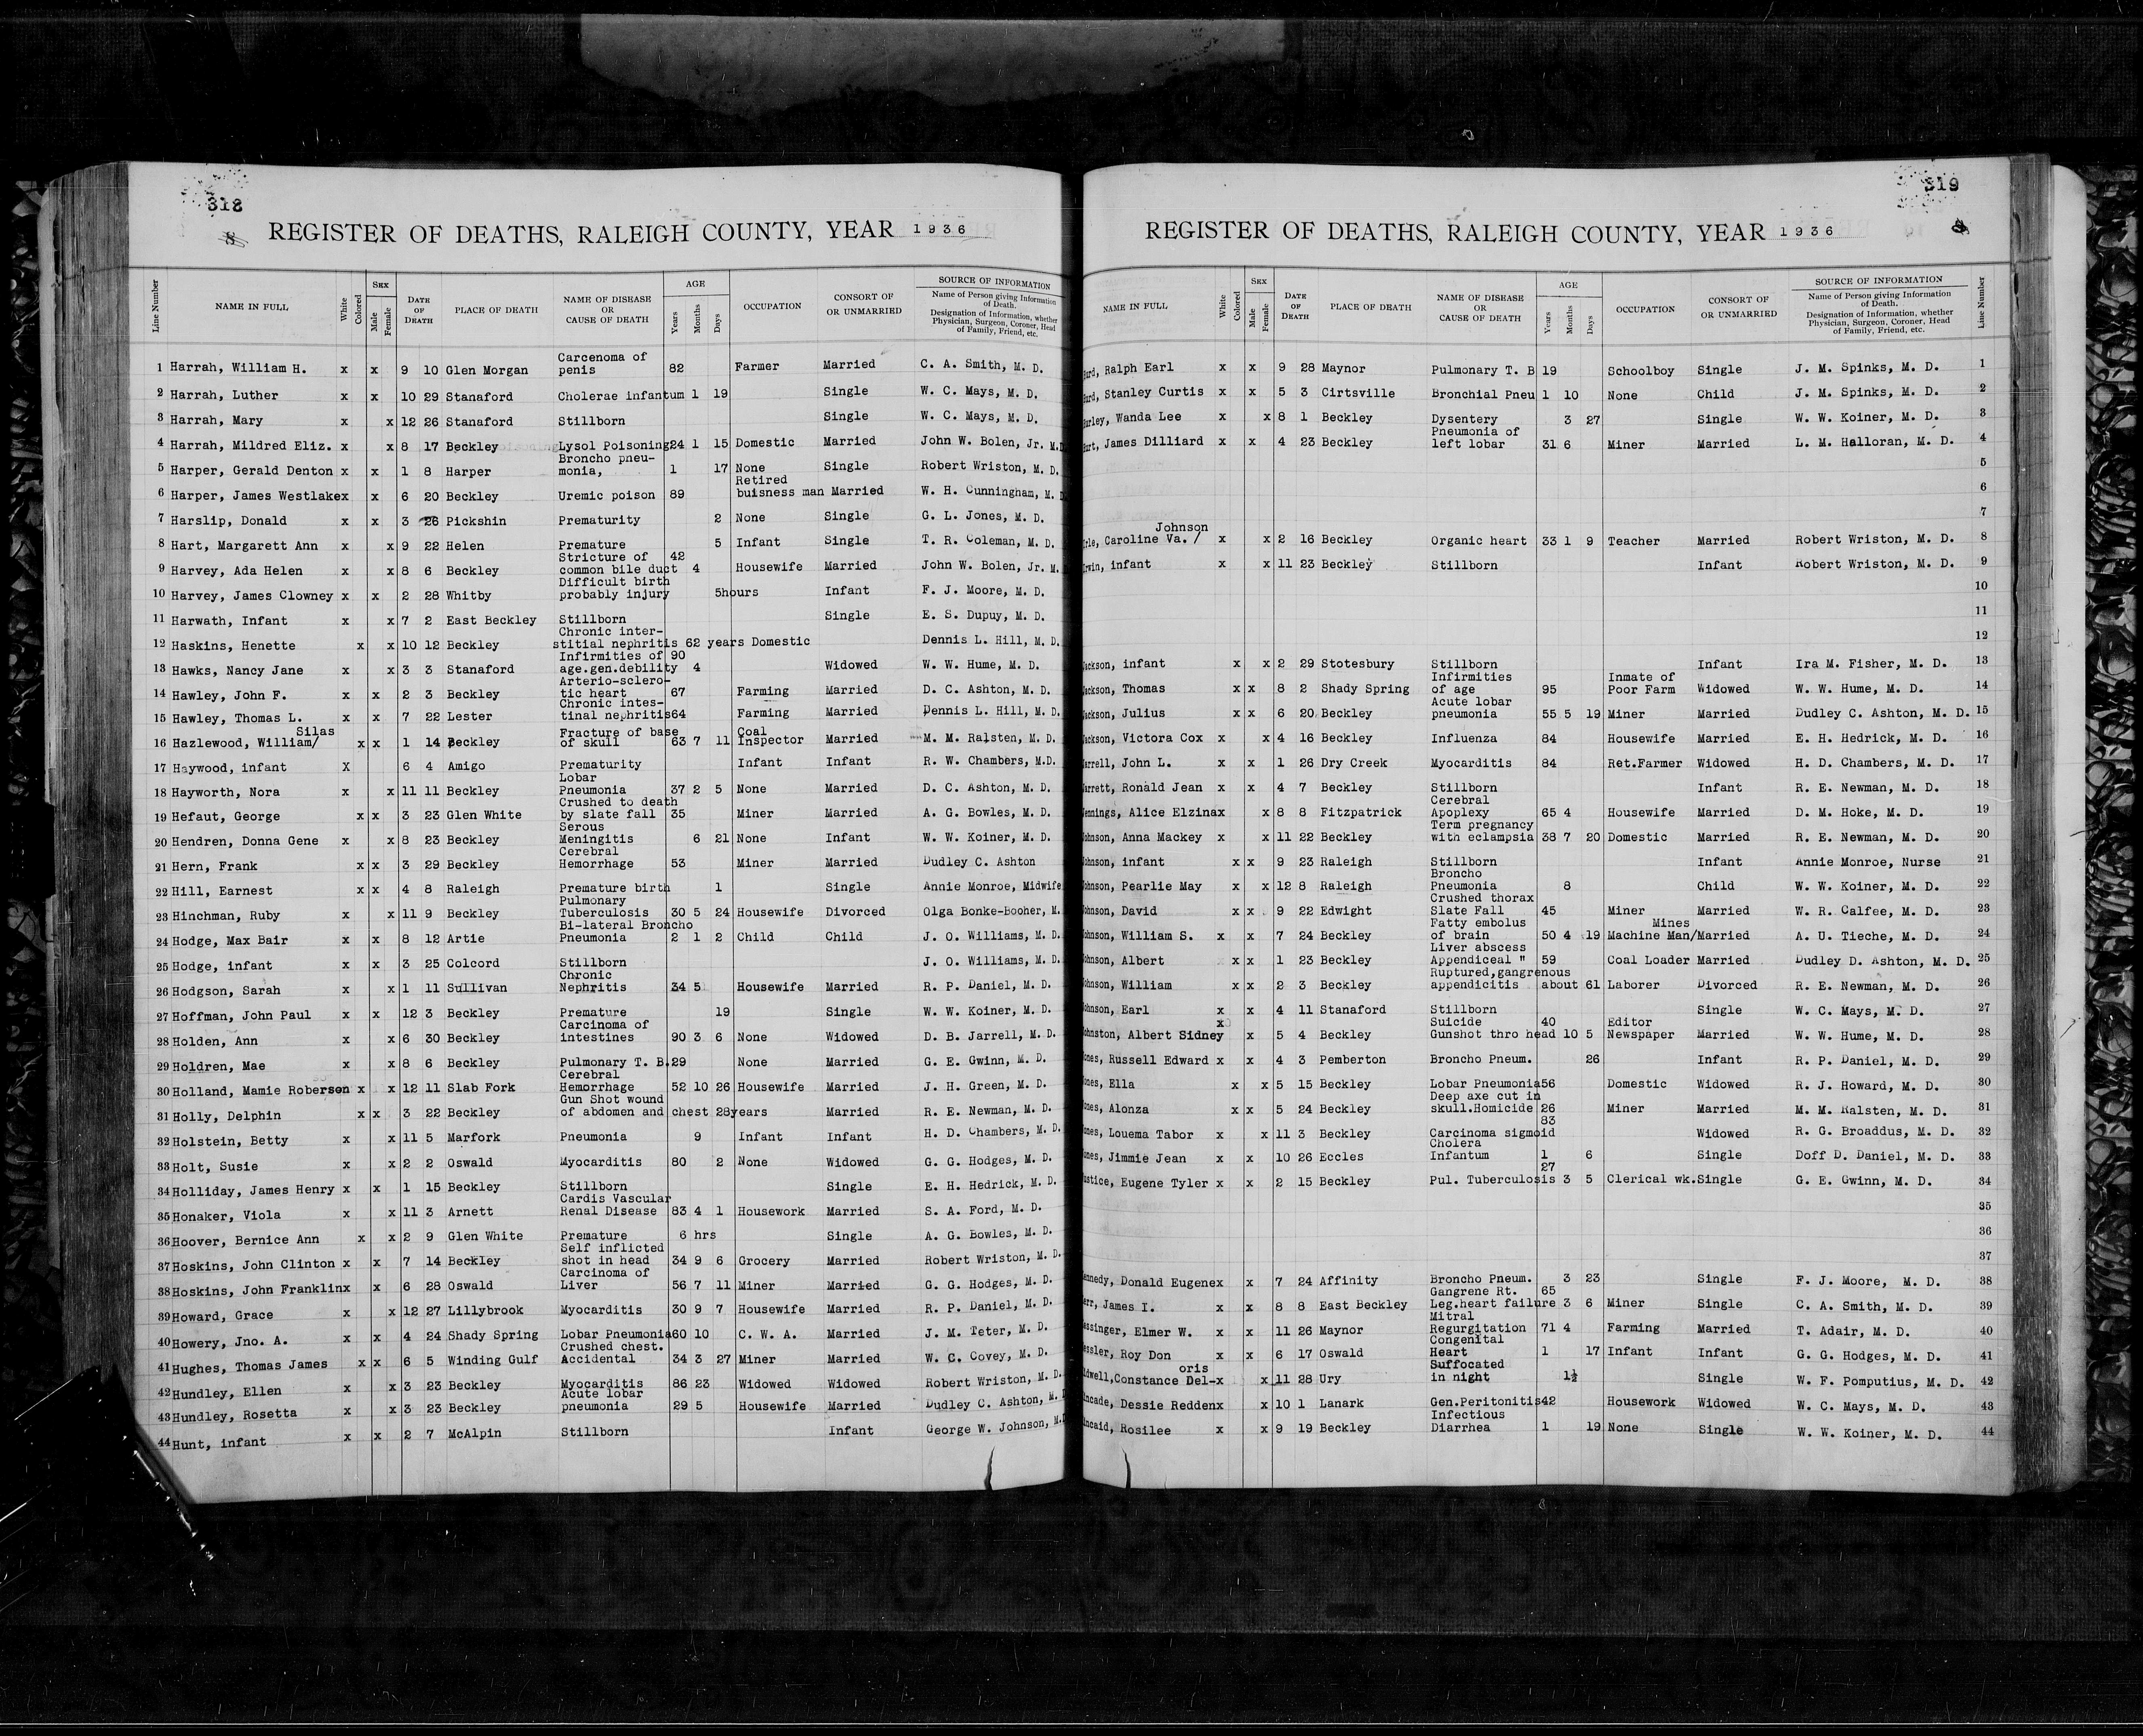 318
REGISTER OF DEATHS, RALEIGH COUNTY, YEAR 1936
Line Number NAME IN FULL White Colored SEX Male Female DATE OF DEATH PLACE OF DEATH NAME OF DISEASE OR CAUSE OF DEATH AGE Years Months Days OCCUPATION CONSORT OF OR UNMARRIED SOURCE OF INFORMATION Name of Person giving Information of Death. Designation of Information, whether Physician, Surgeon, Coroner, Head of Family, Friend, etc.
1 Harrah, William H. x x 9 10 Glen Morgan Carcenoma of penis 82 Farmer Married C. A. Smith, M. D.
2 Harrah, Luther x x 10 29 Stanaford Cholerae infantum 1 19 Single W. C. Mays, M. D.
3 Harrah, Mary x x 12 26 Stanaford Stillborn Single W. C. Mays, M. D.
4 Harrah, Mildred Eliz. x x 8 17 Beckley Lysol Poisoning 24 1 15 Domestic Married John W. Bolen, Jr. M.D
5 Harper, Gerald Denton x x 1 8 Harper Broncho pneu-monia, 1 17 None Single Robert Wriston, M. D.
6 Harper, James Westlake x x 6 20 Beckley Uremic poison 89 Retired buisness man Married W. H. Cunningham, M. D
7 Harslip, Donald x x 3 26 Pickshin Prematurity 2 None Single G. L. Jones, M. D.
8 Hart, Margarett Ann x x 9 22 Helen Premature 5 Infant Single T. R. Coleman, M. D.
9 Harvey, Ada Helen x x 8 6 Beckley Stricture of common bile duct 42 4 Housewife Married John W. Bolen, Jr. M.
10 Harvey, James Clowney x x 2 28 Whitby Difficult birth probably injury 5hours Infant F. J. Moore, M. D.
11 Harwath, Infant x x 7 2 East Beckley Stillborn Single E. S. Dupuy, M. D.
12 Haskins, Henette x x 10 12 Beckley Chronic inter-stitial nephritis 62 years Domestic Dennis L. Hill, M. D.
13 Hawks, Nancy Jane x x 3 3 Stanaford Infirmities of age.gen.debility 90 4 Widowed W. W. Hume, M. D.
14 Hawley, John F. x x 2 3 Beckley Arterio-sclero-tic heart 67 Farming Married D. C. Ashton, M. D.
15 Hawley, Thomas L. x x 7 22 Lester Chronic intes-tinal nephritis 64 Farming Married Dennis L. Hill, M. D.
16 Hazlewood, William/ Silas x x 1 14 Beckley Fracture of base of skull 63 7 11 Coal Inspector Married M. M. Ralsten, M. D.
17 Haywood, infant X 6 4 Amigo Prematurity Infant Infant R. W. Chambers, M.D.
18 Hayworth, Nora x x 11 11 Beckley Lobar Pneumonia 37 2 5 None Married D. C. Ashton, M. D.
19 Hefaut, George x x 3 23 Glen White Crushed to death by slate fall 35 Miner Married A. G. Bowles, M. D.
20 Hendren, Donna Gene x x 8 23 Beckley Serous Meningitis 6 21 None Infant W. W. Koiner, M. D.
21 Hern, Frank x x 3 29 Beckley Cerebral Hemorrhage 53 Miner Married Dudley C. Ashton
22 Hill, Earnest x x 4 8 Raleigh Premature birth 1 Single Annie Monroe, Midwife
23 Hinchman, Ruby x x 11 9 Beckley Pulmonary Tuberculosis 30 5 24 Housewife Divorced Olga Bonke-Booher, M.
24 Hodge, Max Bair x x 8 12 Artie Bi-lateral Broncho Pneumonia 2 1 2 Child Child J. O. Williams, M. D.
25 Hodge, infant x x 3 25 Colcord Stillborn J. O. Williams, M. D.
26 Hodgson, Sarah x x 1 11 Sullivan Chronic Nephritis 34 5 Housewife Married R. P. Daniel, M. D.
27 Hoffman, John Paul x x 12 3 Beckley Premature 19 Single W. W. Koiner, M. D.
28 Holden, Ann x x 6 30 Beckley Carcinoma of intestines 90 3 6 None Widowed D. B. Jarrell, M. D.
29 Holdren, Mae x x 8 6 Beckley Pulmonary T. B. 29 None Married G. E. Gwinn, M. D.
30 Holland, Mamie Roberson x x 12 11 Slab Fork Cerebral Hemorrhage 52 10 26 Housewife Married J. H. Green, M. D.
31 Holly, Delphin x x 3 22 Beckley Gun Shot wound of abdomen and chest 28years Married R. E. Newman, M. D.
32 Holstein, Betty x x 11 5 Marfork Pneumonia 9 Infant Infant H. D. Chambers, M. D.
33 Holt, Susie x x 2 2 Oswald Myocarditis 80 2 None Widowed G. G. Hodges, M. D.
34 Holliday, James Henry x x 1 15 Beckley Stillborn Single E. H. Hedrick, M. D.
35 Honaker, Viola x x 11 3 Arnett Cardis Vascular Renal Disease 83 4 1 Housework Married S. A. Ford, M. D.
36 Hoover, Bernice Ann x x 2 9 Glen White Premature 6 hrs Single A. G. Bowles, M. D.
37 Hoskins, John Clinton x x 7 14 Beckley Self inflicted shot in head 34 9 6 Grocery Married Robert Wriston, M. D.
38 Hoskins, John Franklin x x 6 28 Oswald Carcinoma of Liver 56 7 11 Miner Married G. G. Hodges, M. D.
39 Howard, Grace x x 12 27 Lillybrook Myocarditis 30 9 7 Housewife Married R. P. Daniel, M. D.
40 Howery, Jno. A. x x 4 24 Shady Spring Lobar Pneumonia 60 10 C. W. A. Married J. M. Teter, M. D.
41 Hughes, Thomas James x x 6 5 Winding Gulf Crushed chest. Accidental 34 3 27 Miner Married W. C. Covey, M. D.
42 Hundley, Ellen x x 3 23 Beckley Myocarditis 86 23 Widowed Widowed Robert Wriston, M. D.
43 Hundley, Rosetta x x 3 23 Beckley Acute lobar pneumonia 29 5 Housewife Married Dudley C. Ashton, M. D
44 Hunt, infant x x 2 7 McAlpin Stillborn Infant George W. Johnson, M.D
319
REGISTER OF DEATHS, RALEIGH COUNTY, YEAR 1936
NAME IN FULL White Colored SEX Male Female DATE OF DEATH PLACE OF DEATH NAME OF DISEASE OR CAUSE OF DEATH AGE Years Months Days OCCUPATION CONSORT OF OR UNMARRIED SOURCE OF INFORMATION Name of Person giving Information of Death. Designation of Information, whether Physician, Surgeon, Coroner, Head of Family, Friend, etc. Line Number
urd, Ralph Earl x x 9 28 Maynor Pulmonary T. B 19 Schoolboy Single J. M. Spinks, M. D. 1
urd, Stanley Curtis x x 5 3 Cirtsville Bronchial Pneu 1 10 None Child J. M. Spinks, M. D. 2
urley, Wanda Lee x x 8 1 Beckley Dysentery 3 27 Single W. W. Koiner, M. D. 3
urt, James Dilliard x x 4 23 Beckley Pneumonia of left lobar 31 6 Miner Married L. M. Halloran, M. D. 4
5
6
7
rle, Caroline Va. / Johnson x x 2 16 Beckley Organic heart 33 1 9 Teacher Married Robert Wriston, M. D. 8
rwin, infant x x 11 23 Beckley Stillborn Infant Robert Wriston, M. D. 9
10
11
12
ackson, infant x x 2 29 Stotesbury Stillborn Infant Ira M. Fisher, M. D. 13
ackson, Thomas x x 8 2 Shady Spring Infirmities of age 95 Inmate of Poor Farm Widowed W. W. Hume, M. D. 14
ackson, Julius x x 6 20 Beckley Acute lobar pneumonia 55 5 19 Miner Married Dudley C. Ashton, M. D. 15
ackson, Victora Cox x x 4 16 Beckley Influenza 84 Housewife Married E. H. Hedrick, M. D. 16
arrell, John L. x x 1 26 Dry Creek Myocarditis 84 Ret.Farmer Widowed H. D. Chambers, M. D. 17
arrett, Ronald Jean x x 4 7 Beckley Stillborn Infant R. E. Newman, M. D. 18
ennings, Alice Elzina x x 8 8 Fitzpatrick Cerebral Apoplexy 65 4 Housewife Married D. M. Hoke, M. D. 19
ohnson, Anna Mackey x x 11 22 Beckley Term pregnancy with eclampsia 38 7 20 Domestic Married R. E. Newman, M. D. 20
ohnson, infant x x 9 23 Raleigh Stillborn Infant Annie Monroe, Nurse 21
ohnson, Pearlie May x x 12 8 Raleigh Broncho Pneumonia 8 Child W. W. Koiner, M. D. 22
ohnson, David x x 9 22 Edwight Crushed thorax Slate Fall 45 Miner Married W. R. Calfee, M. D. 23
ohnson, William S. x x 7 24 Beckley Fatty embolus of brain 50 4 19 Machine Man/ Mines Married A. U. Tieche, M. D. 24
ohnson, Albert x x 1 23 Beckley Liver abscess Appendiceal " 59 Coal Loader Married Dudley D. Ashton, M. D. 25
ohnson, William x x 2 3 Beckley Ruptured,gangrenous appendicitis about 61 Laborer Divorced R. E. Newman, M. D. 26
ohnson, Earl x x 4 11 Stanaford Stillborn Single W. C. Mays, M. D. 27
ohnston, Albert Sidney x x 5 4 Beckley Suicide Gunshot thro head 40 10 5 Editor Newspaper Married W. W. Hume, M. D. 28
ones, Russell Edward x x 4 3 Pemberton Broncho Pneum. 26 Infant R. P. Daniel, M. D. 29
ones, Ella x x 5 15 Beckley Lobar Pneumonia 56 Domestic Widowed R. J. Howard, M. D. 30
ones, Alonza x x 5 24 Beckley Deep axe cut in skull.Homicide 26 Miner Married M. M. Ralsten, M. D. 31
ones, Louema Tabor x x 11 3 Beckley Carcinoma sigmoid 83 Widowed R. G. Broaddus, M. D. 32
ones, Jimmie Jean x x 10 26 Eccles Cholera Infantum 1 6 Single Doff D. Daniel, M. D. 33
ustice, Eugene Tyler x x 2 15 Beckley Pul. Tuberculosis 27 3 5 Clerical wk. Single G. E. Gwinn, M. D. 34
35
36
37
ennedy, Donald Eugene x x 7 24 Affinity Broncho Pneum. 3 23 Single F. J. Moore, M. D. 38
err, James I. x x 8 8 East Beckley Gangrene Rt. Leg.heart failure 65 3 6 Miner Single C. A. Smith, M. D. 39
essinger, Elmer W. x x 11 26 Maynor Mitral Regurgitation 71 4 Farming Married T. Adair, M. D. 40
essler, Roy Don x x 6 17 Oswald Congenital Heart 1 17 Infant Infant G. G. Hodges, M. D. 41
idwell,Constance Del-oris x x 11 28 Ury Suffocated in night 1½ Single W. F. Pomputius, M. D. 42
incade, Dessie Redden x x 10 1 Lanark Gen.Peritonitis 42 Housework Widowed W. C. Mays, M. D. 43
incaid, Rosilee x x 9 19 Beckley Infectious Diarrhea 1 19 None Single W. W. Koiner, M. D. 44